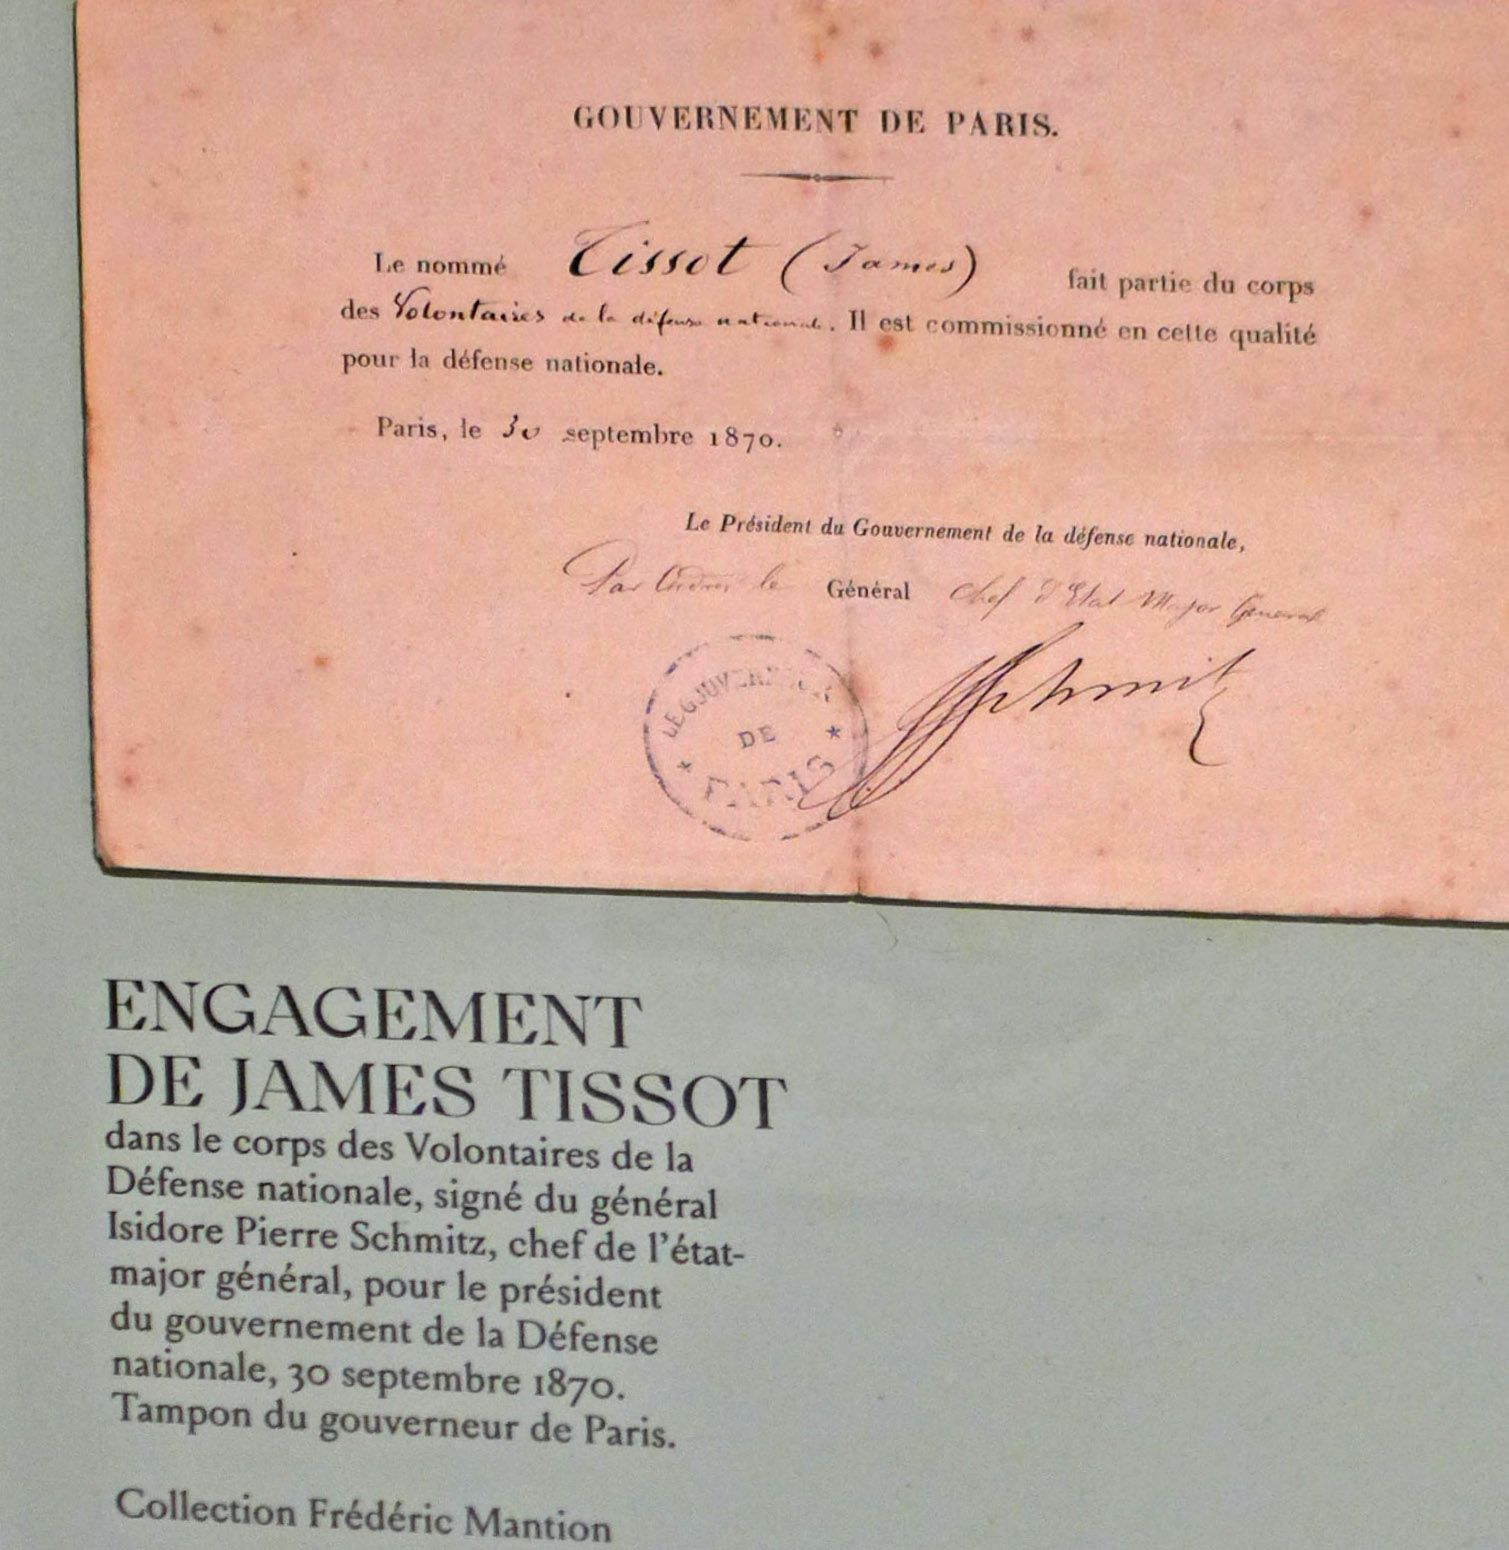 GOUVERNEMENT DE PARIS.
Le nommé Tissot (James) fait partie du corps
des Volontaires de la défense nationale. Il est commissionné en cette qualité
pour la défense nationale.
Paris, le 30 septembre 1870.
Le Président du Gouvernement de la défense nationale,
Par Ordre, le Général Chef d'Etat Major Général
LE GOUVERNEUR
DE
PARIS
Schmitz
ENGAGEMENT
DE JAMES TISSOT
dans le corps des Volontaires de la
Défense nationale, signé du général
Isidore Pierre Schmitz, chef de l'état-
major général, pour le président
du gouvernement de la Défense
nationale, 30 septembre 1870.
Tampon du gouverneur de Paris.
Collection Frédéric Mantion